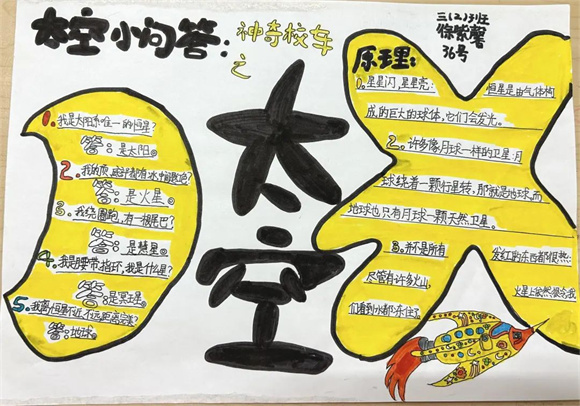 太空小问答：
神奇校车
之
三（2）班
徐紫馨
36号
太空
1。我是太阳系唯一的恒星？
答：是太阳。
2。我的
答：是火星。
3。我绕圈跑，有一根尾巴？
答：是慧星。
4。我是腰带指环，我是什么星？
答：是
5。我离恒星不近不远距离完美？
答：地球。
原理：
1。星星闪，星星亮：恒星是由气体构
成的巨大的球体，它们会发光。
2。许多像月球一样的卫星：月
球绕着一颗行星转，那就是地球，而
地球也只有月球一颗天然卫星。
3。并不是所有发红的东西都很热：
尽管有许多火山，火星上依然很冷，我
们看到水都冻住了